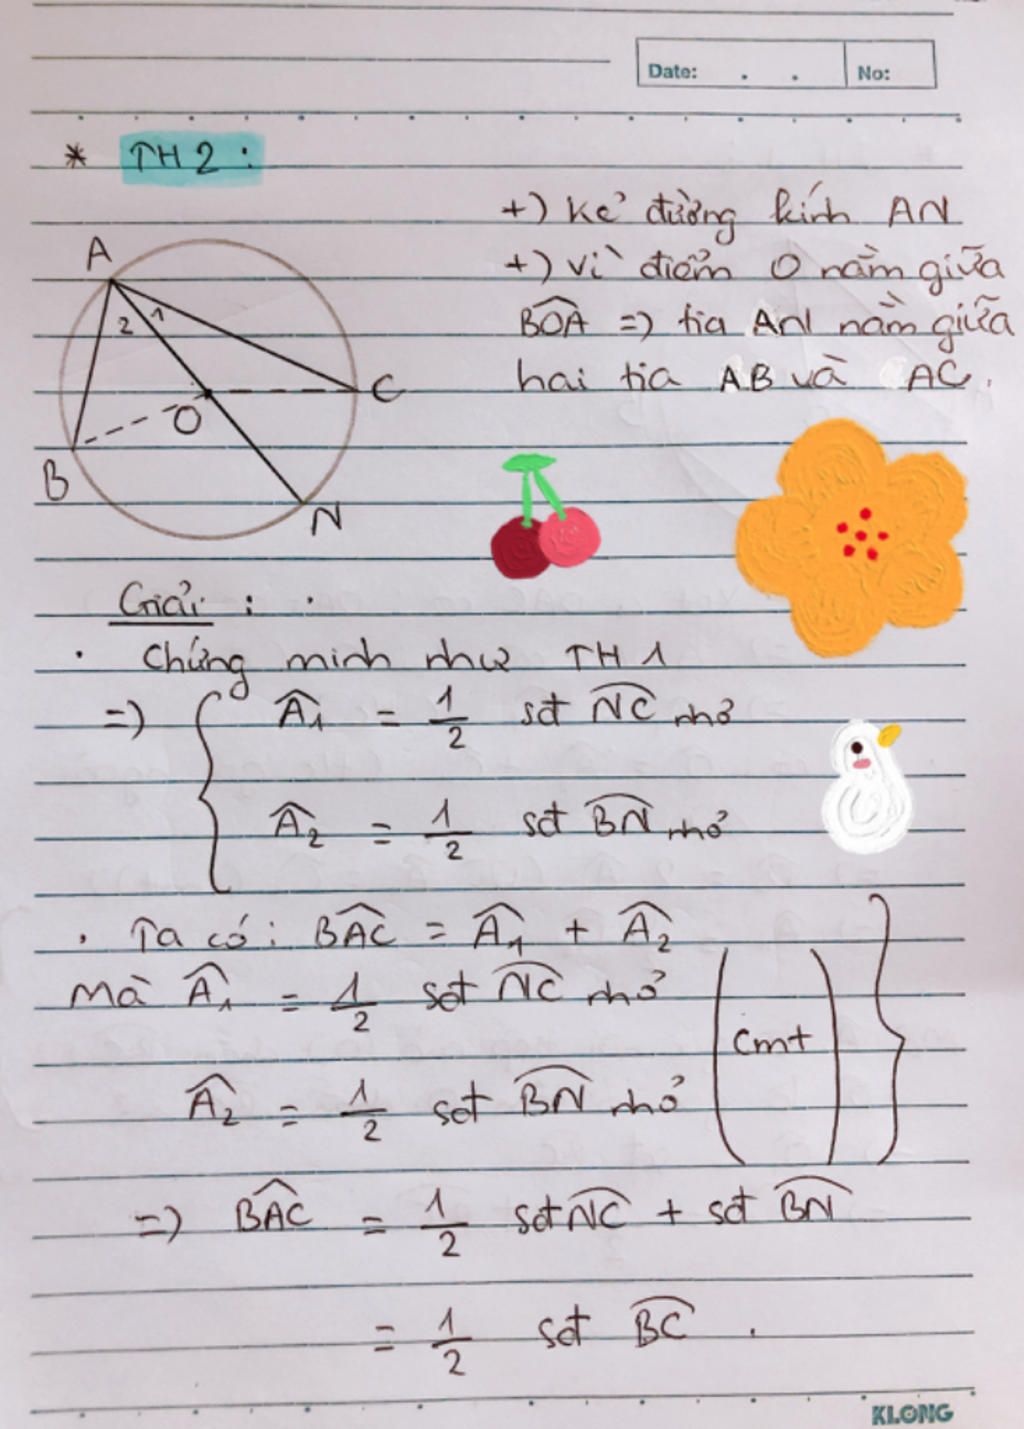 Date: . . No:
* TH2 :
+) Kẻ đường kính AN
+) Vì điểm O nằm giữa
B̂OA => tia AN nằm giữa
hai tia AB và AC.
A
2 1
O
C
B
N
Giải :
. Chứng minh như TH1
=> { Â₁ = 1/2 sđ NC nhỏ
Â₂ = 1/2 sđ BN nhỏ
. Ta có : BÂC = Â₁ + Â₂
Mà Â₁ = 1/2 sđ NC nhỏ
(cmt)
Â₂ = 1/2 sđ BN nhỏ
=> BÂC = 1/2 sđ NC + sđ BN
= 1/2 sđ BC .
KLONG